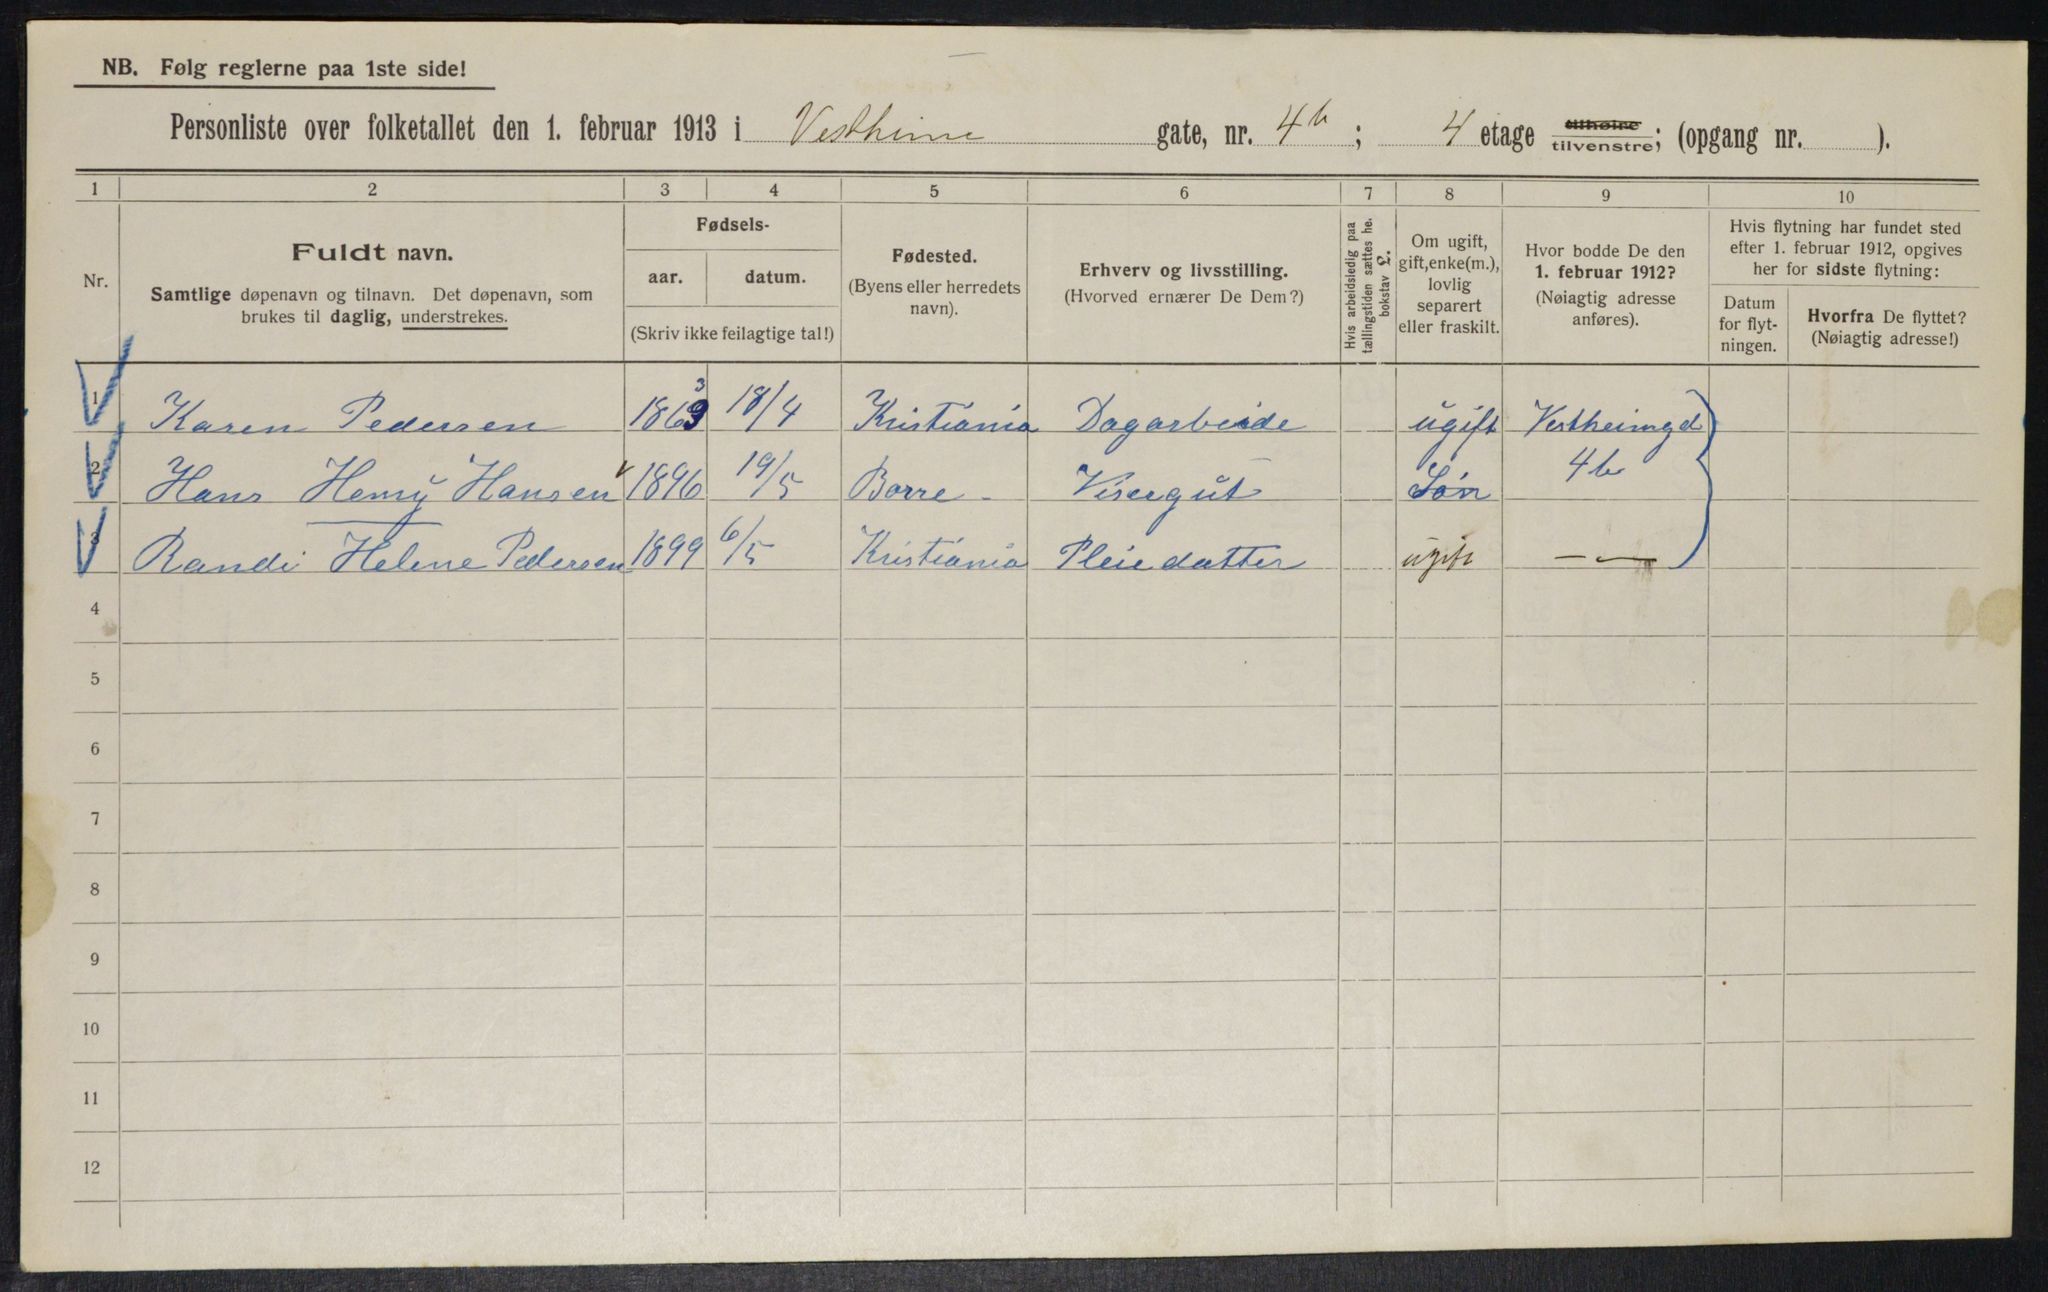 NB. Følg reglerne paa 1ste side!
Personliste over folketallet den 1. februar 1913 i Vestheim gate, nr. 4b; 4 etage tilhøire tilvenstre; (opgang nr. ).
1 2 3 4 5 6 7 8 9 10
Nr.
Fuldt navn.
Samtlige døpenavn og tilnavn. Det døpenavn, som
brukes til daglig, understrekes.
Fødsels-
aar. datum.
(Skriv ikke feilagtige tal!)
Fødested.
(Byens eller herredets
navn).
Erhverv og livsstilling.
(Hvorved ernærer De Dem?)
Hvis arbeidsledig paa
tællingstiden sættes he.
bokstav L.
Om ugift,
gift, enke(m.),
lovlig
separert
eller fraskilt.
Hvor bodde De den
1. februar 1912?
(Nøiagtig adresse
anføres).
Hvis flytning har fundet sted
efter 1. februar 1912, opgives
her for sidste flytning:
Datum
for flyt-
ningen.
Hvorfra De flyttet?
(Nøiagtig adresse!)
1 Karen Pedersen 1863 3 18/4 Kristiania Dagarbeide ugift Vestheimgd
2 Hans Henry Hansen 1896 19/5 Borre - Visergut Søn 4b
3 Randi Helene Pedersen 1899 6/5 Kristiania Pleiedatter ugift — —
4
5
6
7
8
9
10
11
12